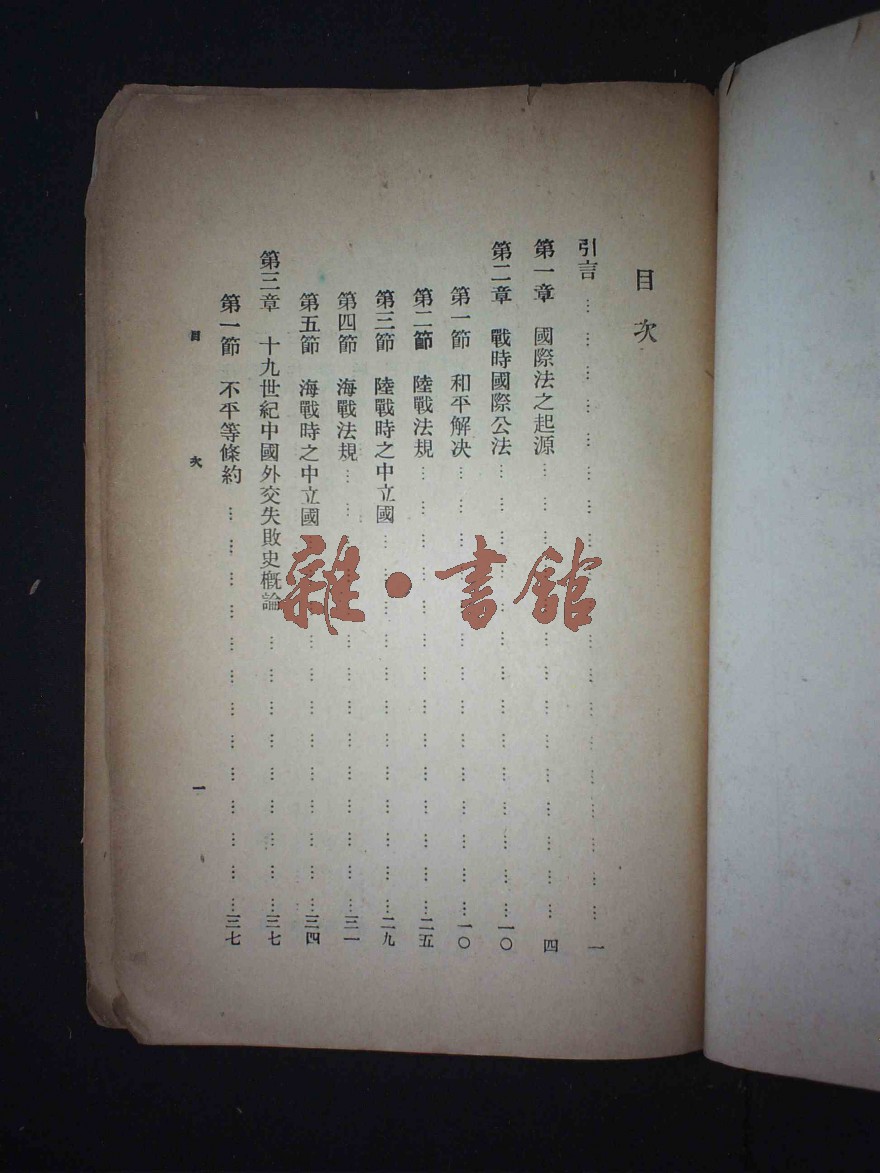 目次
引言 … … … … … … … … … … … … … … … … … … 一
第一章 國際法之起源 … … … … … … … … … … … … … … 四
第二章 戰時國際公法 … … … … … … … … … … … … … … 一〇
第一節 和平解決 … … … … … … … … … … … … … … 一〇
第二節 陸戰法規 … … … … … … … … … … … … … … 二五
第三節 陸戰時之中立國 … … … … … … … … … … … … 二九
第四節 海戰法規 … … … … … … … … … … … … … … 三一
第五節 海戰時之中立國 … … … … … … … … … … … … 三四
第三章 十九世紀中國外交失敗史概論 … … … … … … … … … 三七
第一節 不平等條約 … … … … … … … … … … … … … 三七
目次 一
雜·書館